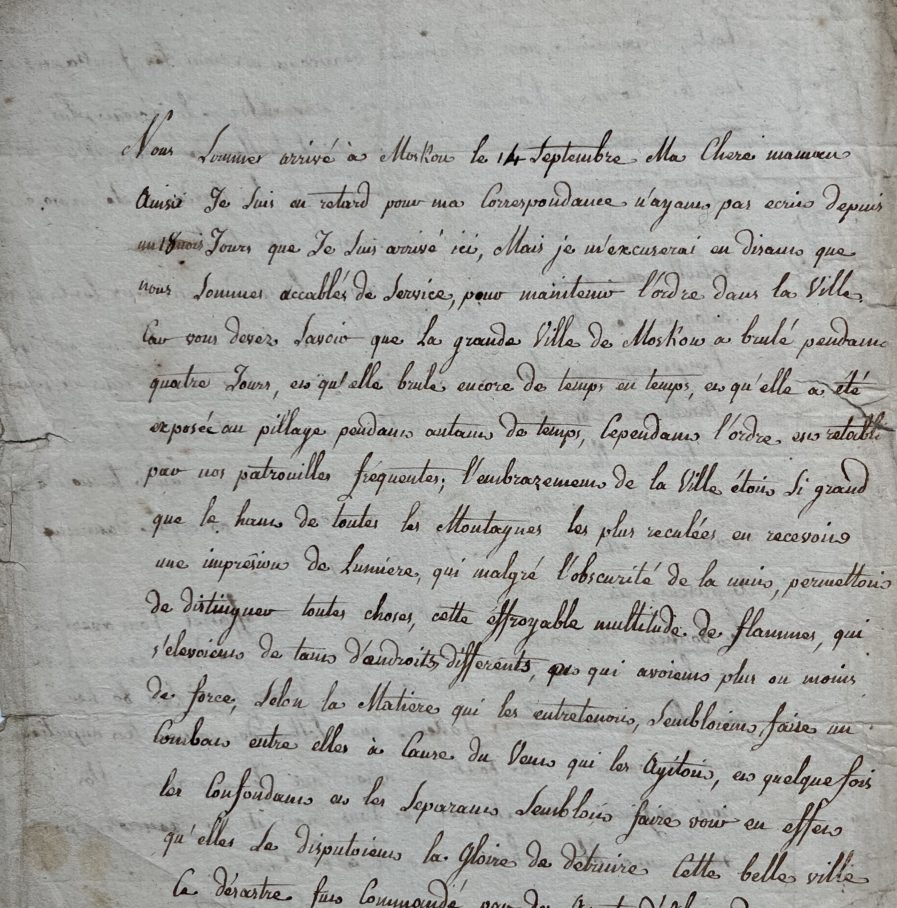 Nous Sommes arrivé à Moskou le 14 Septembre Ma Chere maman
Ainsi Je Suis en retard pour ma Correspondance n'ayant pas ecrit depuis
18 Jours que Je Suis arrivé ici, Mais je m'excuserai en disant que
nous Sommes accablés de Service, pour maintenir l'ordre dans la Ville,
Car vous devez Savoir que La grande Ville de Moskou a brulé pendant
quatre Jours, et qu'elle brule encore de temps en temps, et qu'elle a été
exposée au pillage pendant autant de temps, Cependant l'ordre est retabli
par nos patrouilles fréquentes; l'embrazement de la Ville étoit Si grand
que le haut de toutes les Montagnes les plus reculées en recevoit
une impression de Lumiere, qui malgré l'obscurité de la nuit, permettoit
de distinguer toutes choses, cette effroyable multitude de flammes, qui
s'elevoient de tant d'endroits differents, et qui avoient plus ou moins
de force, Selon la Matiere qui les entretenoit, Sembloient faire un
Combat entre elles à Cause du Vent qui les Agitoit, et quelque fois
les Confondant et les Separant Sembloit faire voir en effet
qu'elles Se disputoient la Gloire de détruire Cette belle ville
Ce désastre fut Commandé par des